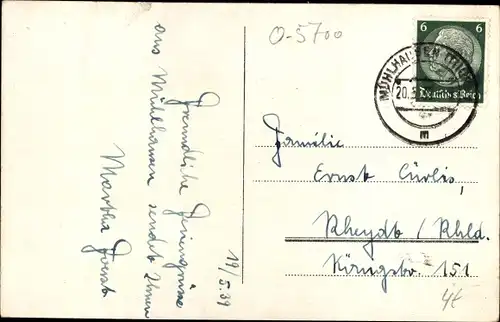 O-5700
6 6
Deutsches Reich
MÜHLHAUSEN (THÜR)
20.
E
Familie
Ernst Cürlis,
Rheydt / Rhld.
Königstr. 151
4t
Freundliche Feriengrüsse
aus Mühlhausen sendet Ihnen
Martha
19/5.39